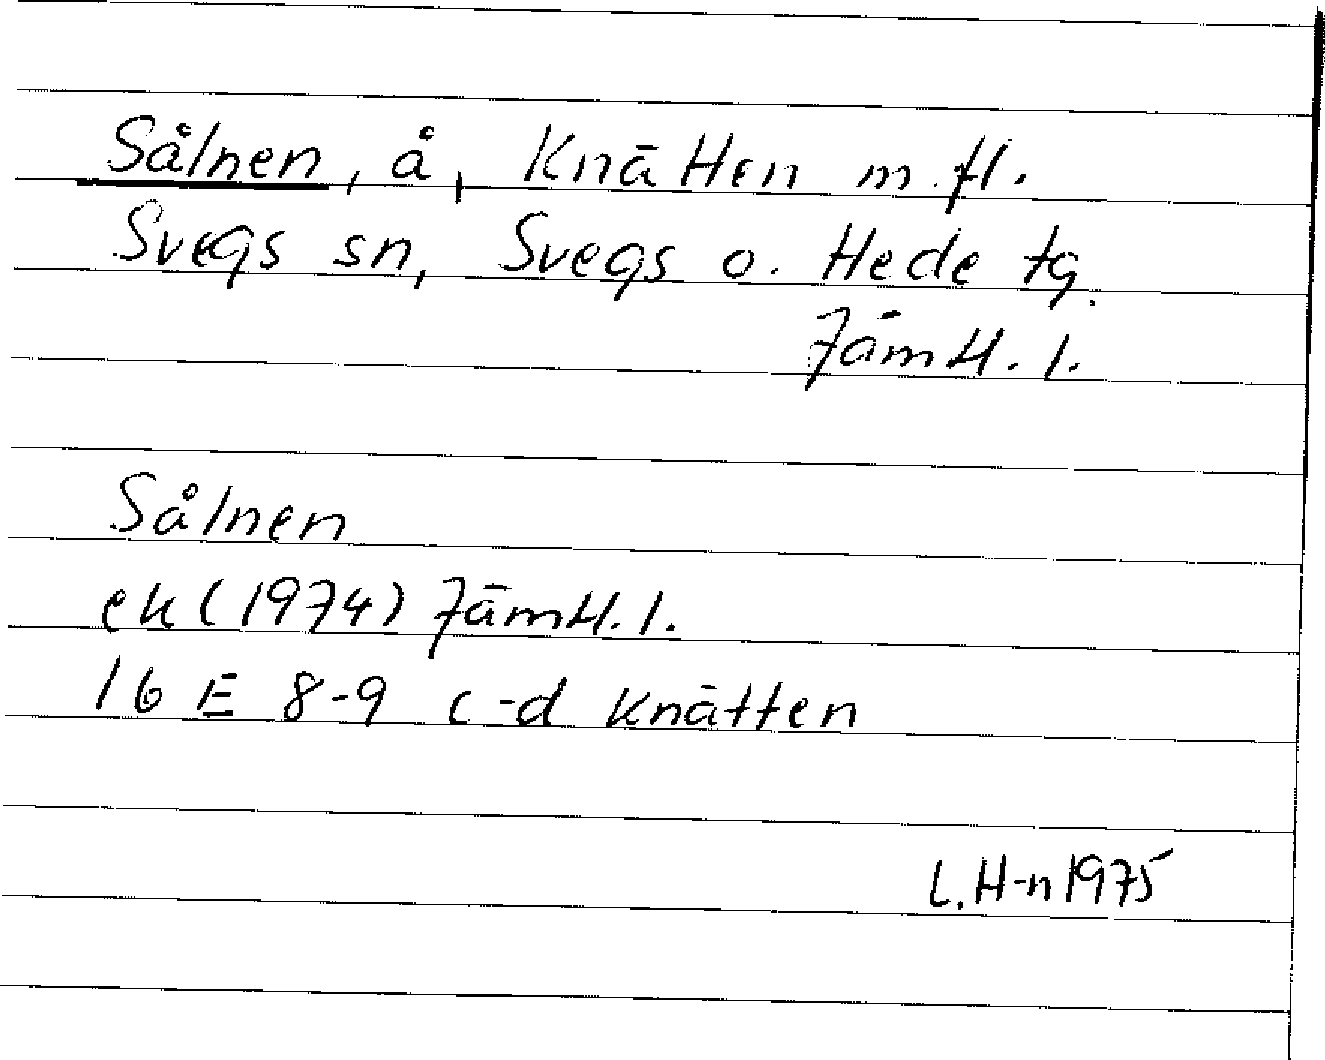 Sålnen, å, Knätten m.fl.
Svegs sn, Svegs o. Hede tg.
Jämtl. l.
Sålnen
ek (1974) Jämtl. l.
16 E 8-9 c-d Knätten
L. H-n 1975